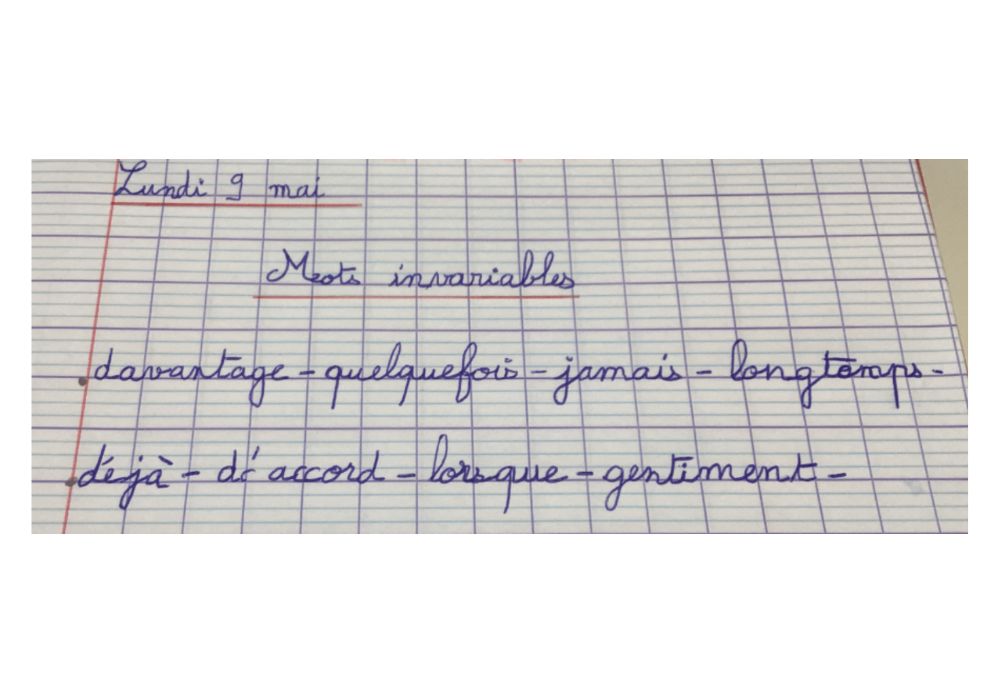 Lundi 9 mai
Mots invariables
davantage - quelquefois - jamais - longtemps -
déjà - d'accord - lorsque - gentiment -